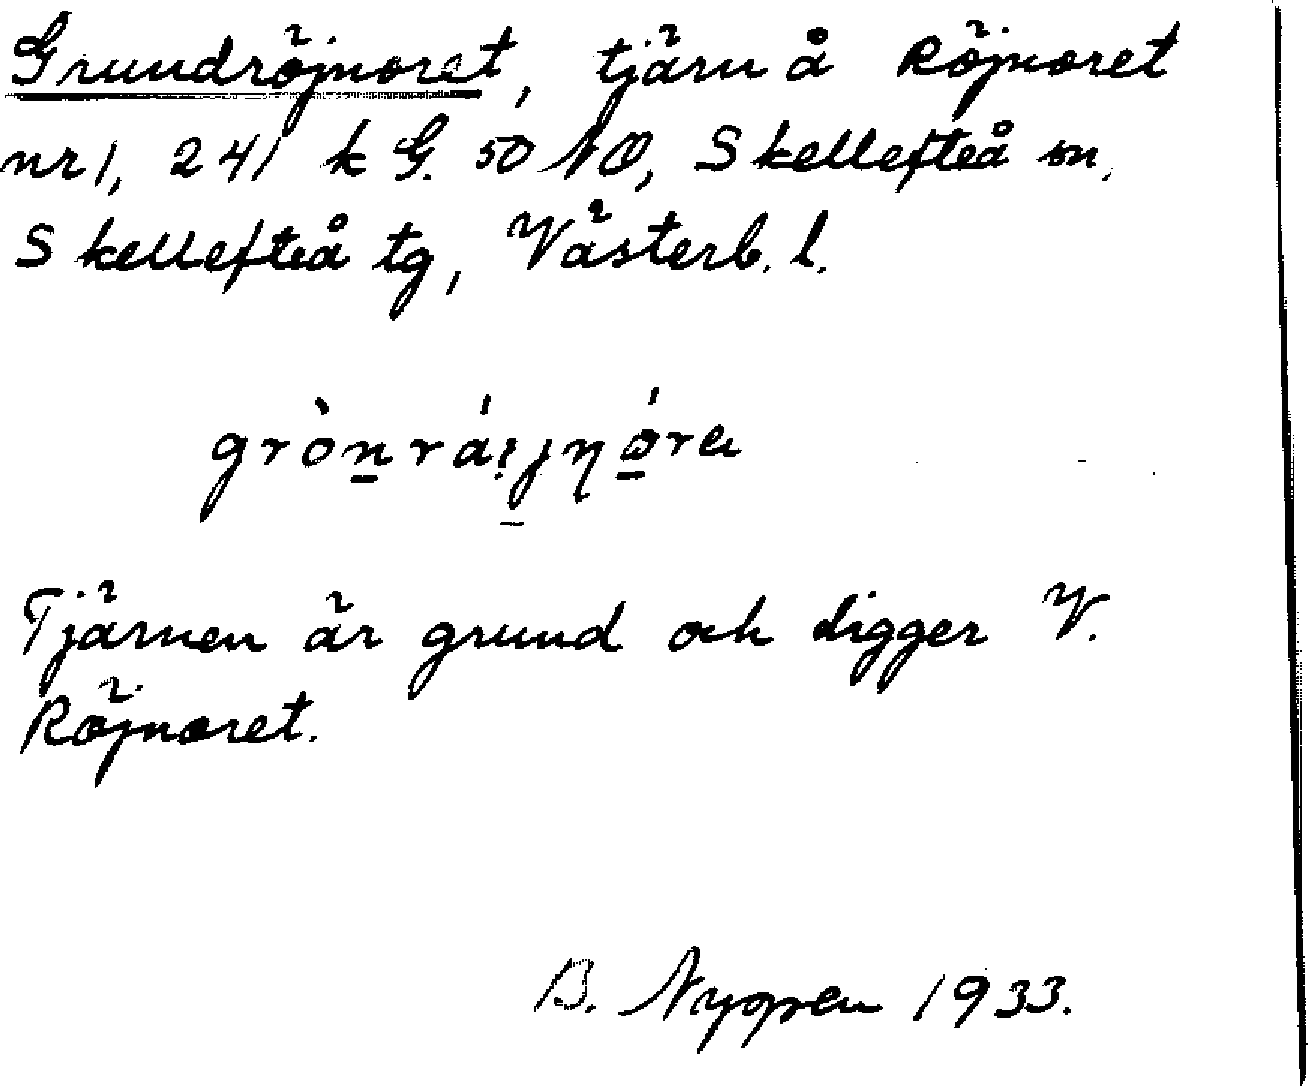 Grundröjnoret, tjärn å Röjnoret
nr 1, 241 k G. 50 NO, Skellefteå sn,
Skellefteå tg, Västerb. l.
Tjärnen är grund och ligger V.
Röjnoret.
B. Nygren 1933.